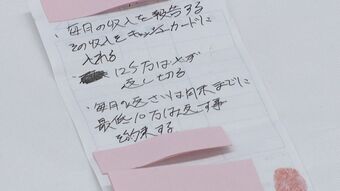 ・毎月の収入を報告する
その収入をキャッシュカードに
入れる
125万は必ず
返し切る
・毎月の返さいは月末までに
最低10万は返す事
を約束する